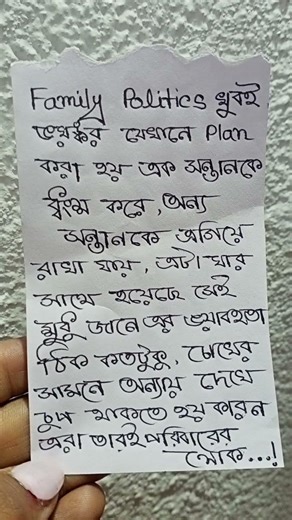 Family Politics খুবই
ভয়ঙ্কর যেখানে Plan
করা হয় এক সন্তানকে
ধ্বংস করে, অন্য
সন্তানকে এগিয়ে
রাখা যায়, এটা যার
সাথে হয়েছে সেই
শুধু জানে এর ভয়াবহতা
ঠিক কতটুকু, চোখের
সামনে অন্যায় দেখে
চুপ থাকতে হয় কারন
এরা তারই পরিবারের
লোক...!